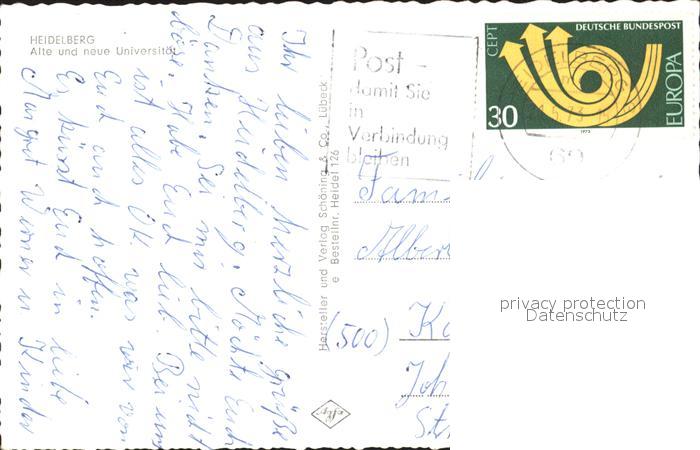 HEIDELBERG
Alte und neue Universität
Ihr lieben herzliche Grüße
aus Heidelberg. Möchte Euch
Danken. Sei mir bitte nicht
böse. Habe Euch lieb. Bei uns
ist alles OK was wir von
Euch auch hoffen.
Es küsst Euch in Liebe
Margret Werner u Kinder
Hersteller und Verlag Schöning & Co., Lübeck
Bestellnr. Heidel 126
Post -
damit Sie
in
Verbindung
bleiben
CEPT
DEUTSCHE BUNDESPOST
EUROPA
30
1973
69
Fam.
Alber
(500) Kö
Joh
St
privacy protection
Datenschutz